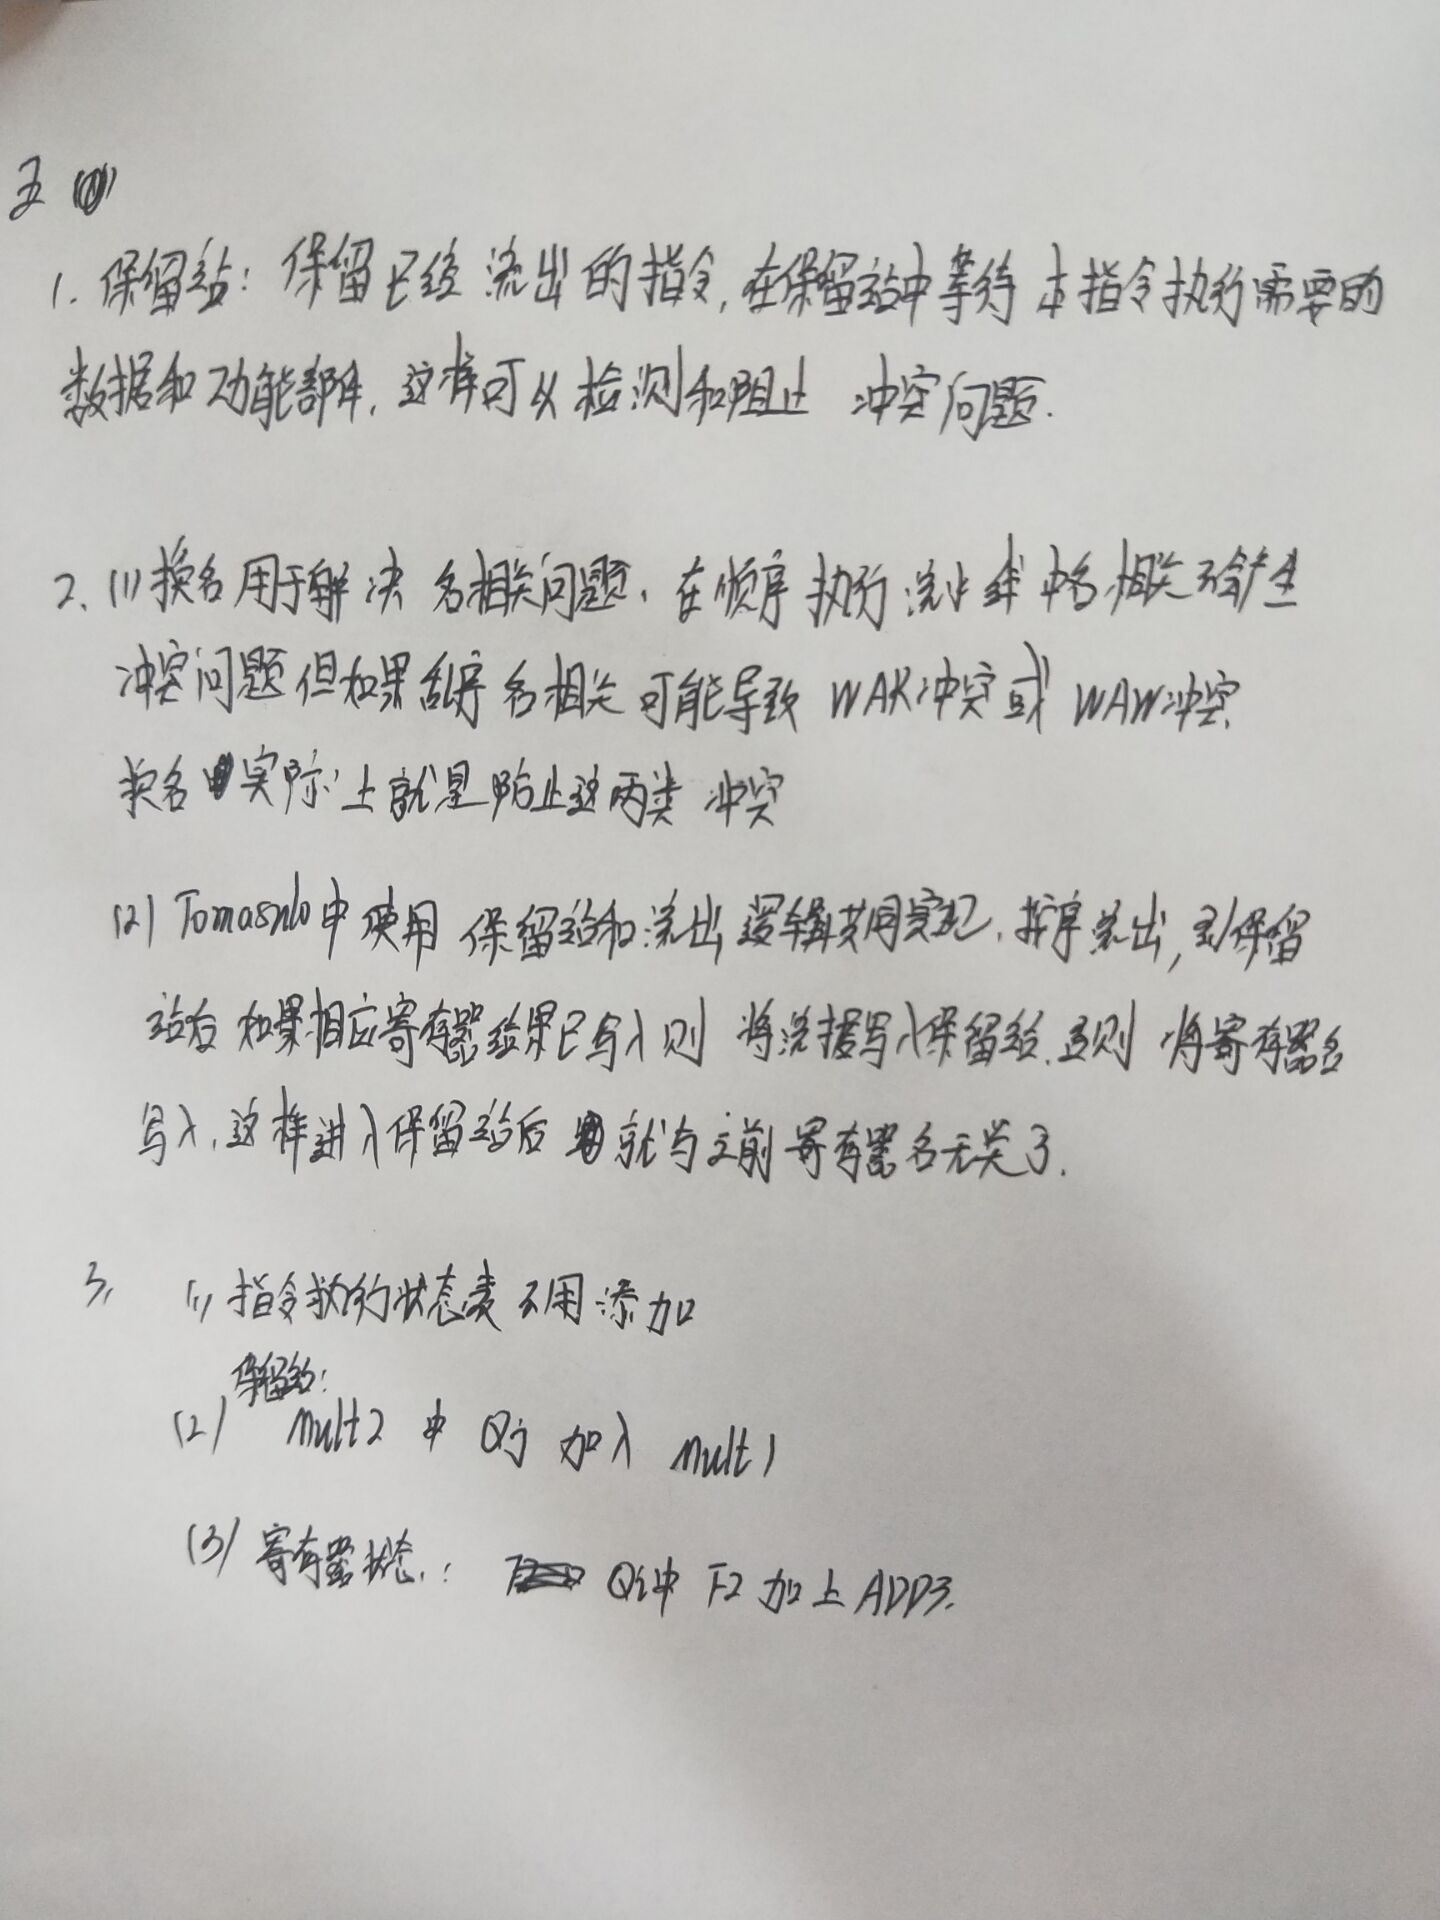 五
1. 保留站：保留已经流出的指令，在保留站中等待本指令执行需要的
数据和功能部件，这样可以检测和阻止 冲突问题.
2. (1) 换名用于解决 名相关问题，在顺序执行流水线中名相关不会产生
冲突问题但如果乱序名相关可能导致 WAR冲突或 WAW冲突.
换名实际上就是防止这两类冲突
(2) Tomasulo中使用 保留站和流出逻辑共同实现，按序流出，到保留
站后 如果相应寄存器结果已写入则 将数据写入保留站，否则 将寄存器名
写入，这样进入保留站后 就与之前寄存器名无关了.
3, (1) 指令执行状态表不用添加
保留站：
(2) mult2 中 Qj 加入 mult1
(3) 寄存器状态： Qi中 F2 加上 ADD3.